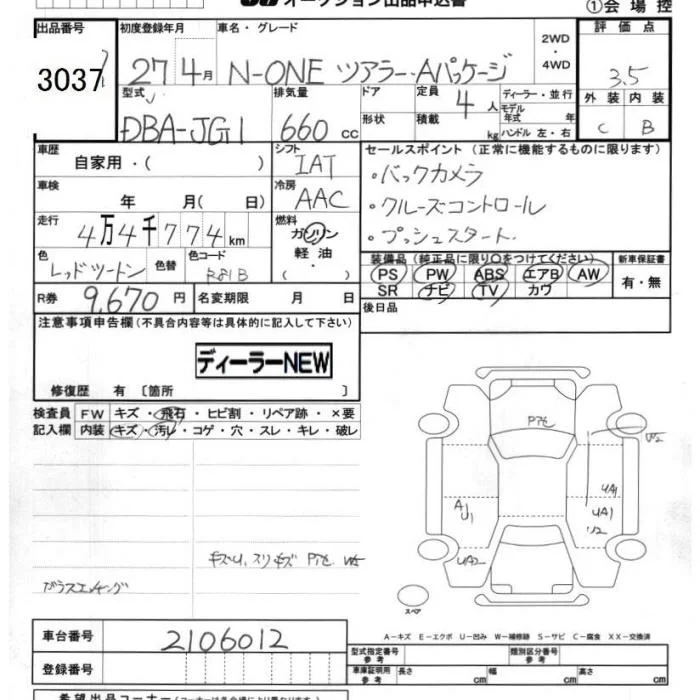 オークション出品申込書
①会場控
出品番号 初度登録年月 車名・グレード 2WD・4WD 評価点
3037 27 4月 N-ONE ツアラー・Aパッケージ 3.5
型式 排気量 ドア 定員 4人 ディーラー・並行 外装 内装
DBA-JG1 660cc 形状 積載 kg モデル年式 年 C B
ハンドル 左・右
車歴 自家用・( ) シフト IAT セールスポイント (正常に機能するものに限ります)
車検 年 月(日) 冷房 AAC ・バックカメラ
走行 4万4千774km 燃料 ガソリン ・クルーズコントロール
軽油 ・プッシュスタート
色 レッドツートン 色替 色コード R81B ( ・ ) 装備品 (純正品に限り○をつけてください) 新車保証書
PS PW ABS エアB AW 有・無
SR ナビ TV カワ
R券 9,670円 名変期限 月 日 後日品
注意事項申告欄(不具合内容等は具体的に記入して下さい)
ディーラーNEW
修復歴 有〔箇所 〕
検査員 FW キズ・飛石・ヒビ割・リペア跡・×要
記入欄 内装 キズ・汚レ・コゲ・穴・スレ・キレ・破レ
P飛
U2
UA1
AU1 UA1
U2
キズU、スリキズ P飛
UA2
ガラスエッチング
スペア
A-キズ E-エクボ U-凹み W-補修跡 S-サビ C-腐食 XX-交換済
車台番号 2106012 型式指定番号 参考 類別区分番号 参考
登録番号 車庫証明用 参考 長さ cm 幅 cm 高さ cm
希望出品コーナー